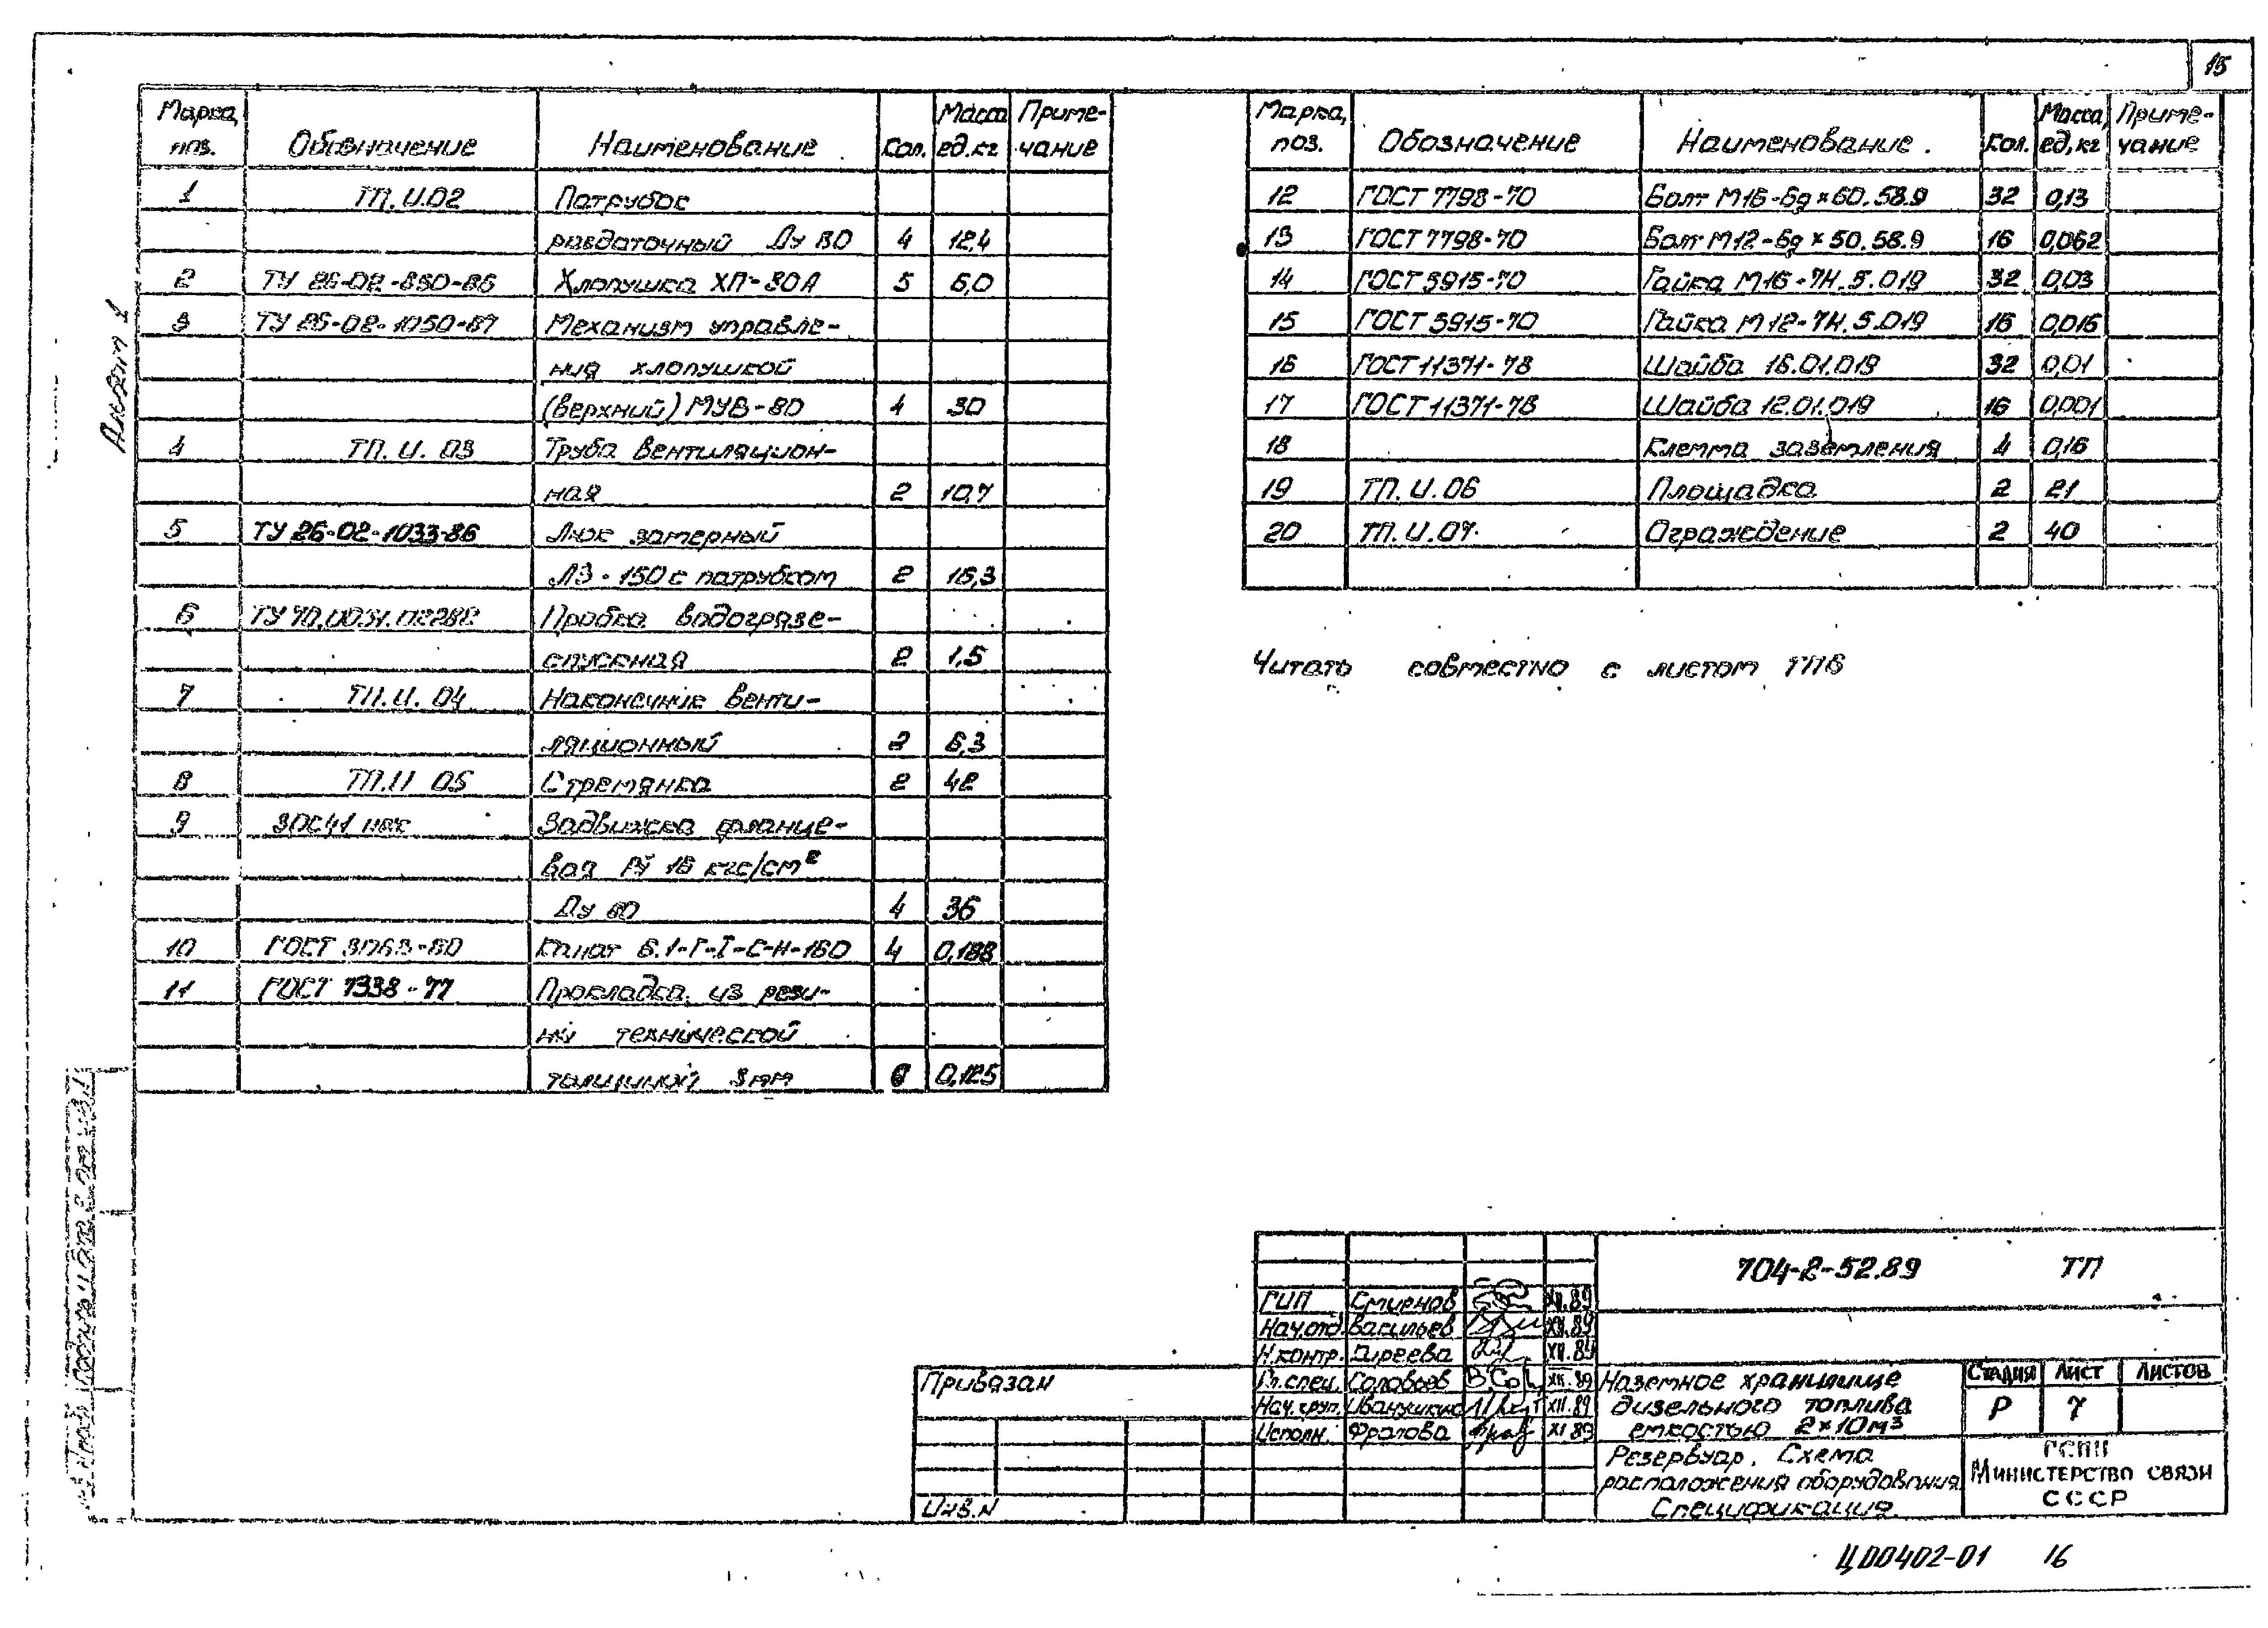 15
Альбом 1
Марка, поз. Обозначение Наименование Кол. Масса ед. кг Приме-чание
1 ТП.И.02 Патрубок
раздаточный Ду 80 4 12,4
2 ТУ 26-02-850-86 Хлопушка ХП-80А 5 6,0
3 ТУ 26-02-1050-87 Механизм управле-
ния хлопушкой
(верхний) МУВ-80 4 30
4 ТП.И.03 Труба вентиляцион-
ная 2 10,7
5 ТУ 26-02-1033-86 Люк замерный
ЛЗ-150 с патрубком 2 15,3
6 Пробка водогрязе-
спускная 2 1,5
7 ТП.И.04 Наконечник венти-
ляционный 2 6,3
8 ТП.И 05 Стремянка 2 42
9 Задвижка фланце-
вая Ру 16 кгс/см²
Ду 80 4 36
10 ГОСТ 3063-80 Канат 6.1-Г-I-С-Н-160 4 0,188
11 ГОСТ 7338-77 Прокладка из рези-
ны технической
толщиной 3мм 0,125
Марка, поз. Обозначение Наименование. Кол. Масса, ед, кг Приме-чание
12 ГОСТ 7798-70 Болт М16-6g×60.58.9 32 0,13
13 ГОСТ 7798-70 Болт М12-6g×50.58.9 16 0,062
14 ГОСТ 5915-70 Гайка М16-7Н.5.019 32 0,03
15 ГОСТ 5915-70 Гайка М12-7Н.5.019 16 0,016
16 ГОСТ 11371-78 Шайба 16.01.019 32 0,01
17 ГОСТ 11371-78 Шайба 12.01.019 16 0,001
18 Клемма заземления 4 0,16
19 ТП.И.06 Площадка 2 21
20 ТП.И.07. Ограждение 2 40
Читать совместно с листом ТП6
704-2-52.89 ТП
ГИП Смирнов XII.89
Нач.отд. Васильев XII.89
Н.контр. XII.89
Гл.спец. Соловьев XII.89
Нач.груп. XII.89
Исполн. Фролова XI.89
Наземное хранилище
дизельного топлива
емкостью 2×10м³
Стадия Лист Листов
Р 7
Резервуар. Схема
расположения оборудования
Спецификация.
ГСПИ
Министерство связи
СССР
Привязан
Инв.N
ЦД0402-01 16